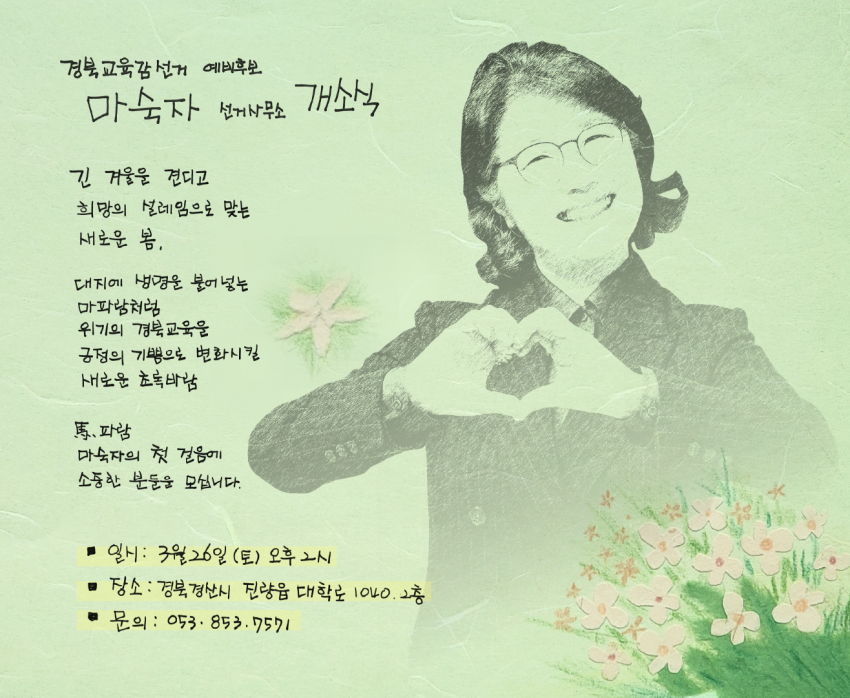 경북교육감선거 예비후보
마숙자 선거사무소 개소식
긴 겨울을 견디고
희망의 설레임으로 맞는
새로운 봄,
대지에 생명을 불어넣는
마파람처럼
위기의 경북교육을
긍정의 기쁨으로 변화시킬
새로운 초록바람
馬.파람
마숙자의 첫 걸음에
소중한 분들을 모십니다.
▪ 일시: 3월26일(토) 오후 2시
▪ 장소: 경북경산시 진량읍 대학로 1040. 2층
▪ 문의: 053.853.7571